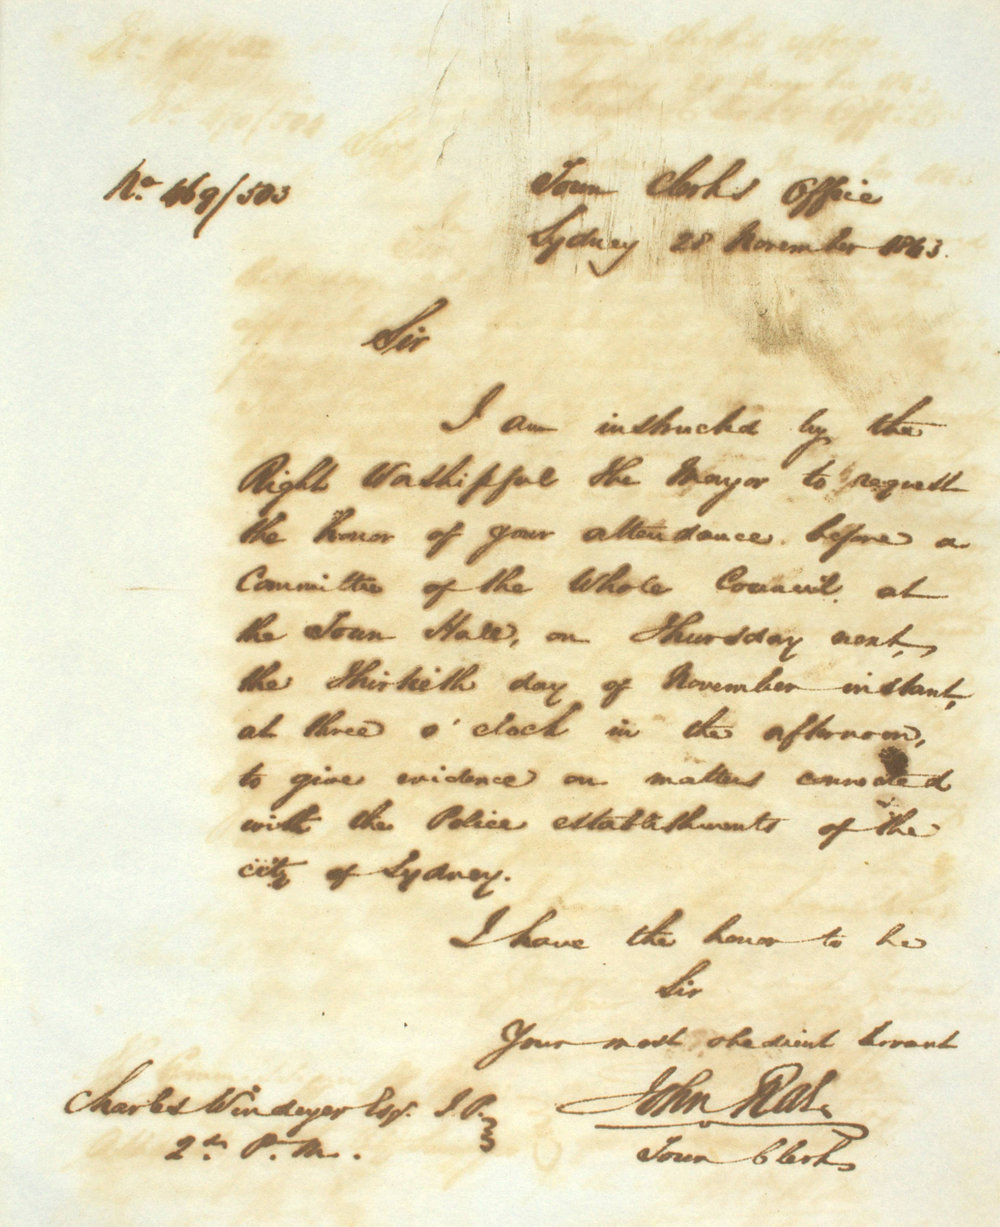 No. 469/503
Town Clerks Office
Sydney 28 November 1843.
Sir
I am instructed by the
Right Worshipful the Mayor to request
the honor of your attendance before a
Committee of the Whole Council at
the Town Hall, on Thursday next,
the Thirtieth day of November instant,
at three o'clock in the afternoon,
to give evidence on matters connected
with the Police establishments of the
city of Sydney.
I have the honor to be
Sir
Your most obedient Servant
John Rae
Town Clerk
Charles Windeyer Esqr. J.P.
P.M.